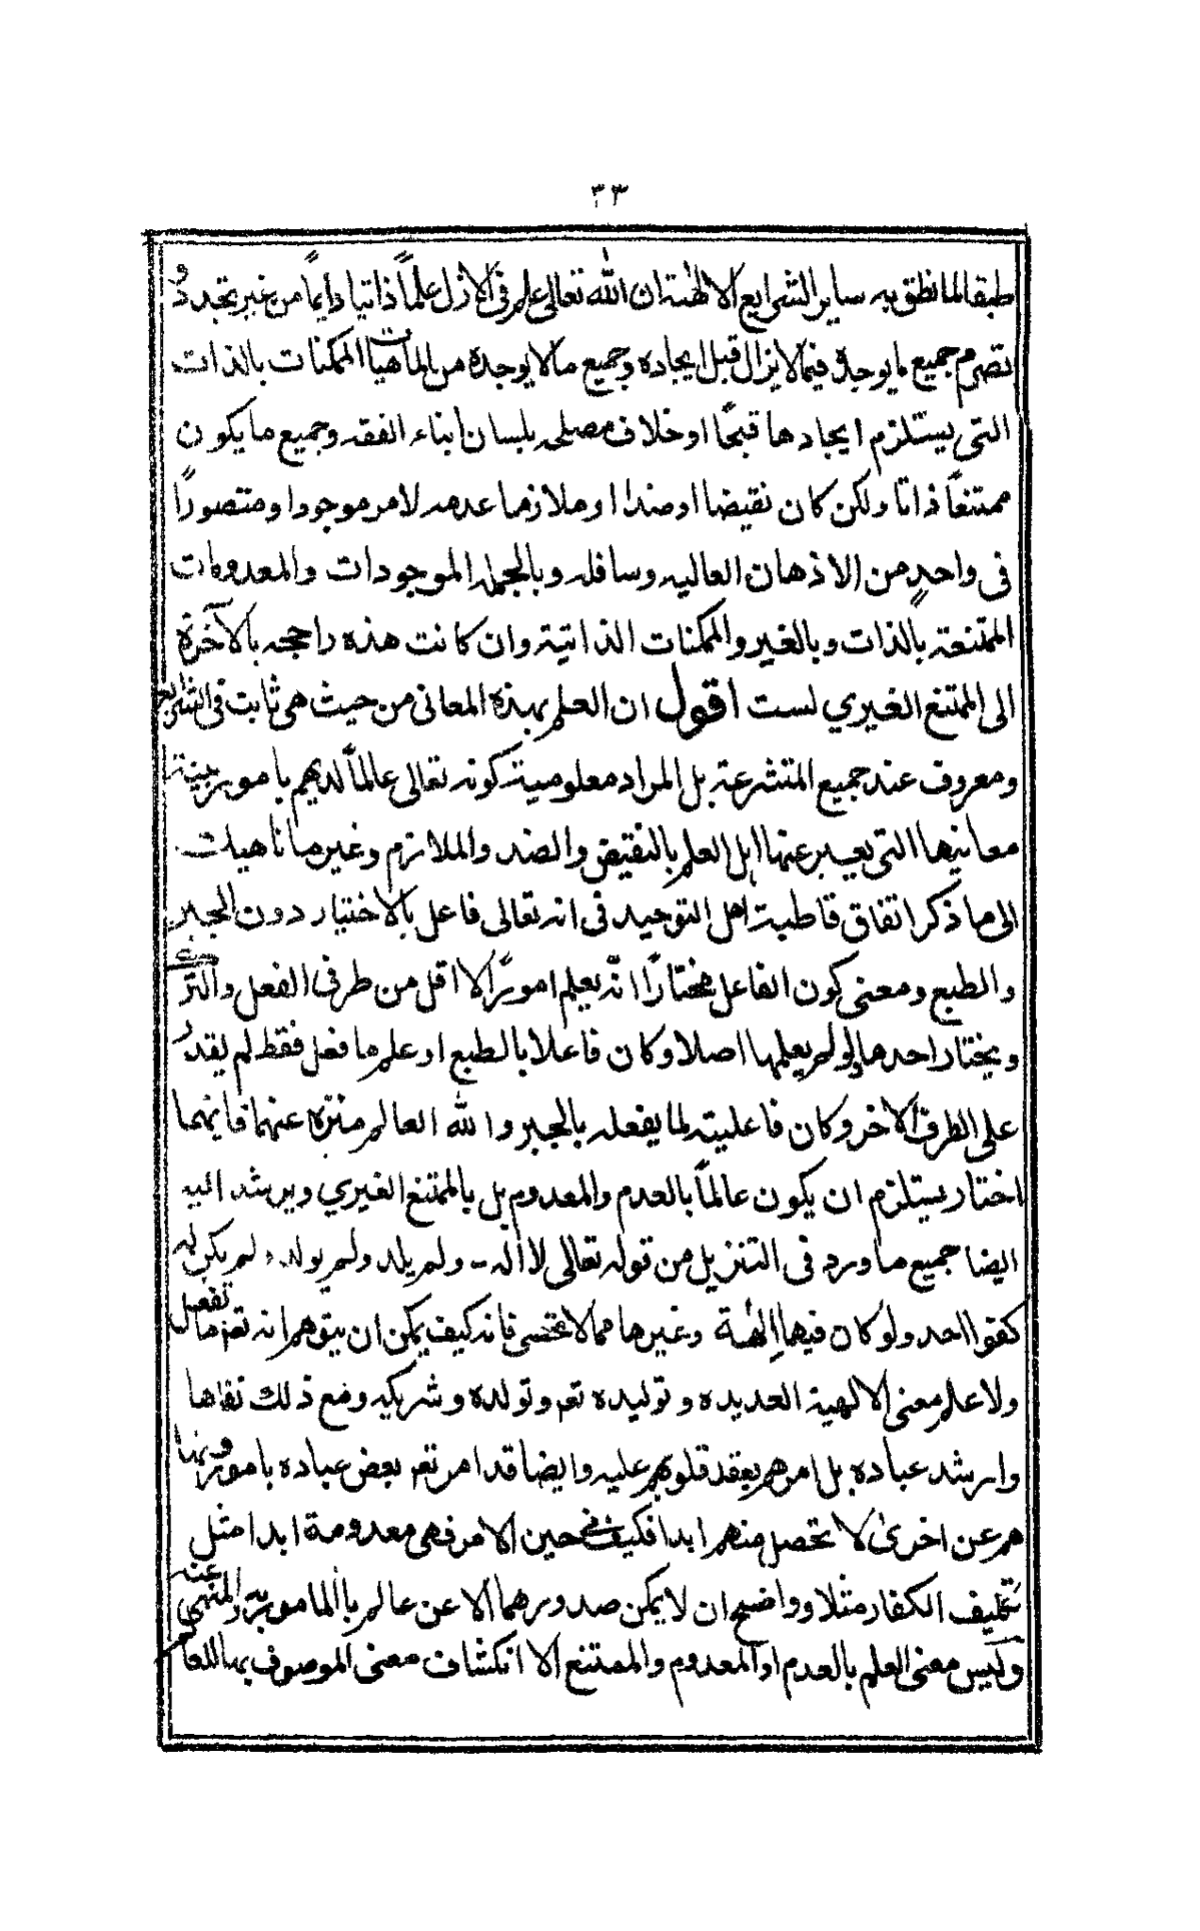 ٣٣
طبقا لما نطق به ساير الشرايع الالهٰية ان الله تعالى علم فى الازل علماً ذاتيا دايماً من غير تجدد و
تصرم جميع ما يوجده فيما لا يزال قبل ايجاده وجميع ما لا يوجده من الماهيات الممكنات بالذات
التى يستلزم ايجادها قبحًا او خلاف مصلحه بلسان ابناء الفقه وجميع ما يكون
ممتنعاً ذاتا ولكن كان نقيضا او ضدا او ملازما عدمه لامر موجودا ومتصورًا
فى واحدٍ من الاذهان العاليه وسافله وبالجمله الموجودات والمعدومات
الممتنعة بالذات وبالغير والممكنات الذاتية وان كانت هذه راجحه بالآخرة
الى الممتنع الغيري لست اقول ان العلم بهذه المعانى من حيث هى ثابت فى الشرايع
ومعروف عند جميع المتشرعة بل المراد معلومية كونه تعالى عالماً لديهم بامور بينة
معانيها التى يعبر عنها اهل العلم بالنقيض والضد والملازم وغير ما ناهيك
الى ما ذكر اتفاق قاطبة اهل التوحيد فى انه تعالى فاعل بالاختيار دون الجبر
والطبع ومعنى كون الفاعل مختارًا انّه يعلم امورًا لا اقل من طرفى الفعل والترك
ويختار احدها ولو لم يعلمها اصلا وكان فاعلا بالطبع او علم ما فعل فقط لم يقدر
على الطرف الاخر وكان فاعليته لما يفعله بالجبر والله العالم منزه عنهما فايهما
اختار يستلزم ان يكون عالماً بالعدم والمعدوم بل بالممتنع الغيري ويرشد اليه
ايضا جميع ما ورد فى التنزيل من قوله تعالى لا اله - ولم يلد ولم يولد، لم يكن له
كفوا احد ولو كان فيها إلهٰة وغيرها مما لا تحصى فانه كيف يمكن ان يتوهم انه تعم ما تفعل
ولا علم معنى الالهية العديده وتوليده تعم وتولده وشريكه ومع ذلك نفاها
وارشد عباده بل امرهم بعقد قلوبهم عليه وايضا قد امر تعم بعض عباده بامور ونها
هم عن اخرىٰ لا تحصل منهم ابدا فكيف فى حين الامر فهى معدومة ابدا مثل
تكليف الكفار مثلا وواضح ان لا يمكن صدورهما الا عن عالم بالمامور به والمنهى عنه
وليس معنى العلم بالعدم او المعدوم والممتنع الا انكشاف معنى الموصوف بها للعا